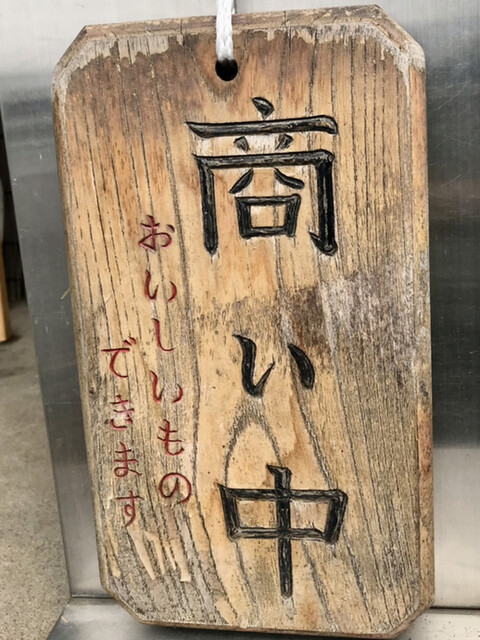 商い中
おいしいもの
できます